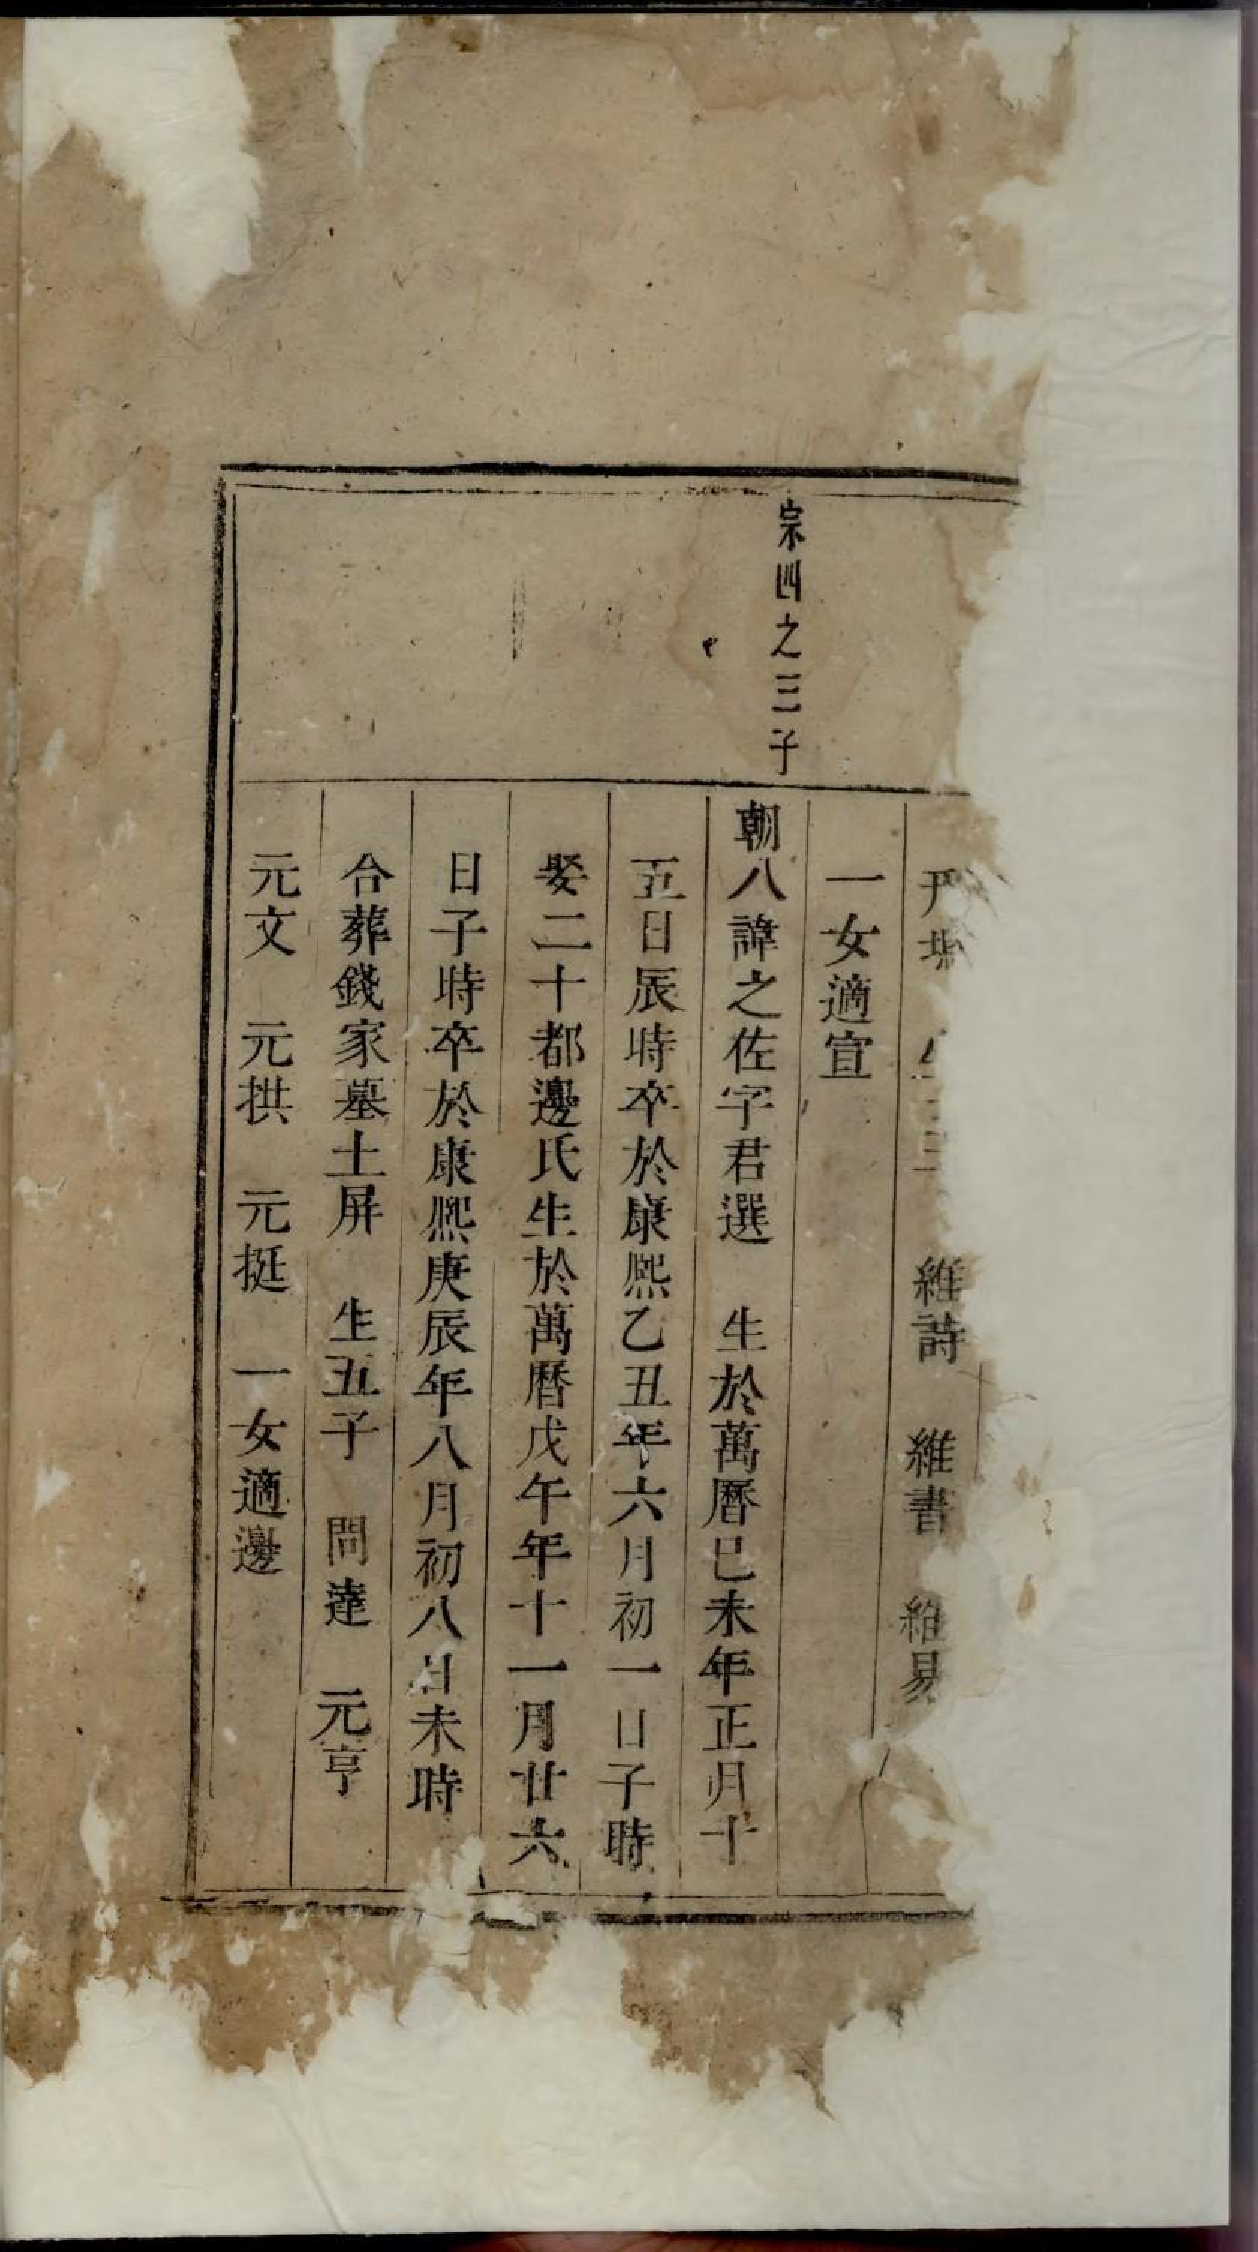 維詩　維書　維易
一女適宣
宗四之三子
朝八諱之佐字君選　生於萬曆巳未年正月十
五日辰時卒於康熙乙丑年六月初一日子時
娶二十都邊氏生於萬曆戊午年十一月廿六
日子時卒於康熙庚辰年八月初八日未時
合葬錢家墓土屏　生五子　問達　元亨
元文　元拱　元挺　一女適邊